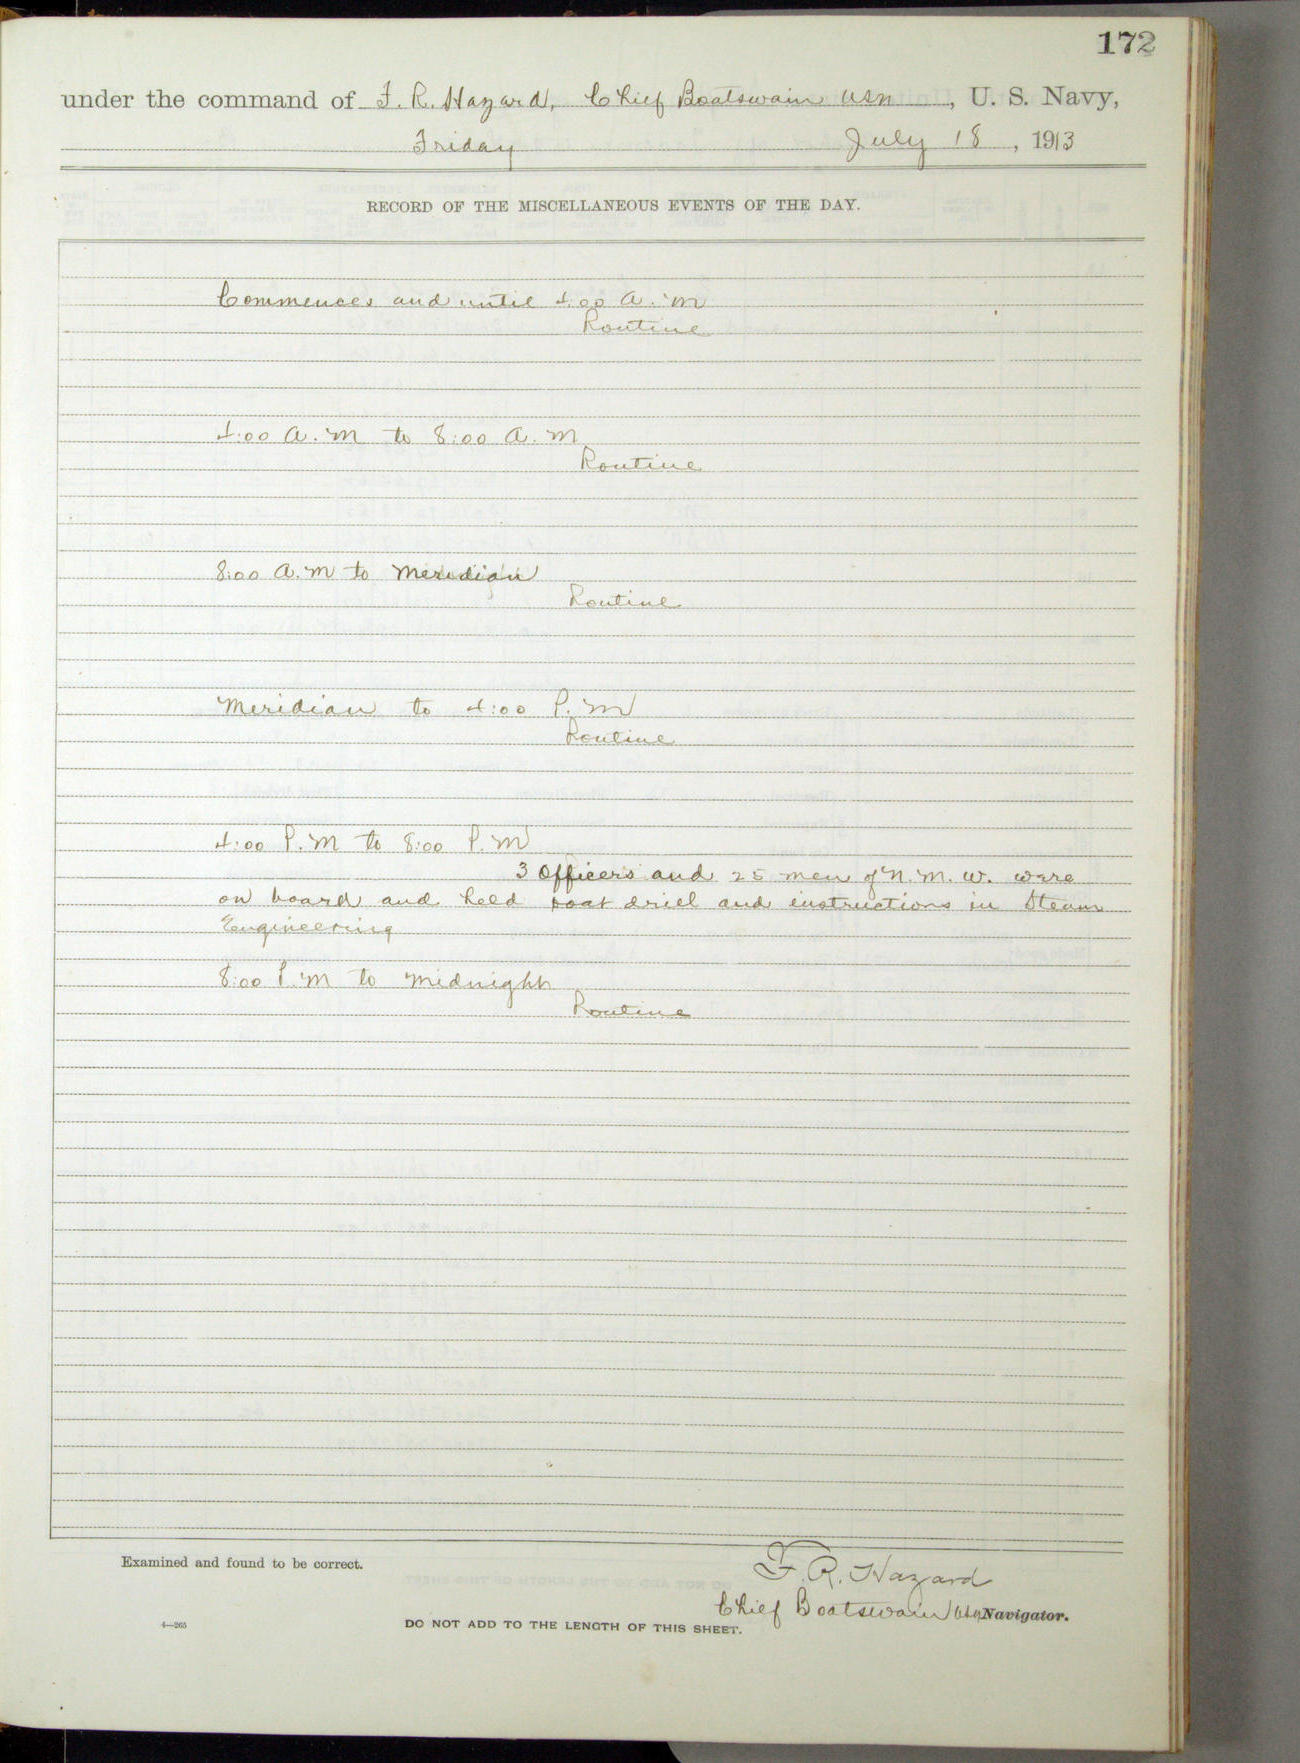 172
under the command of F. R. Hazard, Chief Boatswain USN, U. S. Navy,
Friday July 18, 1913
RECORD OF THE MISCELLANEOUS EVENTS OF THE DAY.
Commences and until 4:00 A.M
Routine
4:00 A.M to 8:00 A.M
Routine
8:00 A.M to Meridian
Routine
Meridian to 4:00 P.M
Routine
4:00 P.M to 8:00 P.M
3 Officers and 25 men of N.M.W. were
on board and held boat drill and instructions in Steam
Engineering
8:00 P.M to Midnight
Routine
Examined and found to be correct.
F. R. Hazard
Chief Boatswain USN Navigator.
4—265
DO NOT ADD TO THE LENGTH OF THIS SHEET.